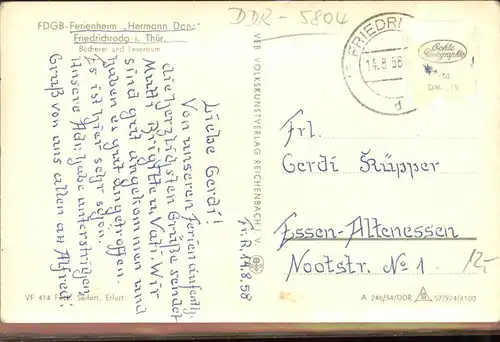 FDGB-Ferienheim „Hermann Danz"
Friedrichroda i. Thür.
Bücherei und Leseraum
DDR - 5804
FRIEDRI
14.8.58
d
Echte
Photographie
DM
Liebe Gerdi!
Von unseren Ferienaufenth.
die herzlichsten Grüße sendet
Mutti Brigitte u. Vati. Wir
sind gut angekommen und
haben es gut angetroffen.
Es ist hier sehr schön.
Unsere Adr. habe unterstrichen.
Gruß von uns allen an Alfred!
Fr. R. 14.8.58
VEB VOLKSKUNSTVERLAG REICHENBACH i. V.
Frl.
Gerdi Küpper
Essen-Altenessen
Nootstr. No 1
12.-
VF 414 Foto: Seifert, Erfurt
A 246/54/DDR
57/974/4100